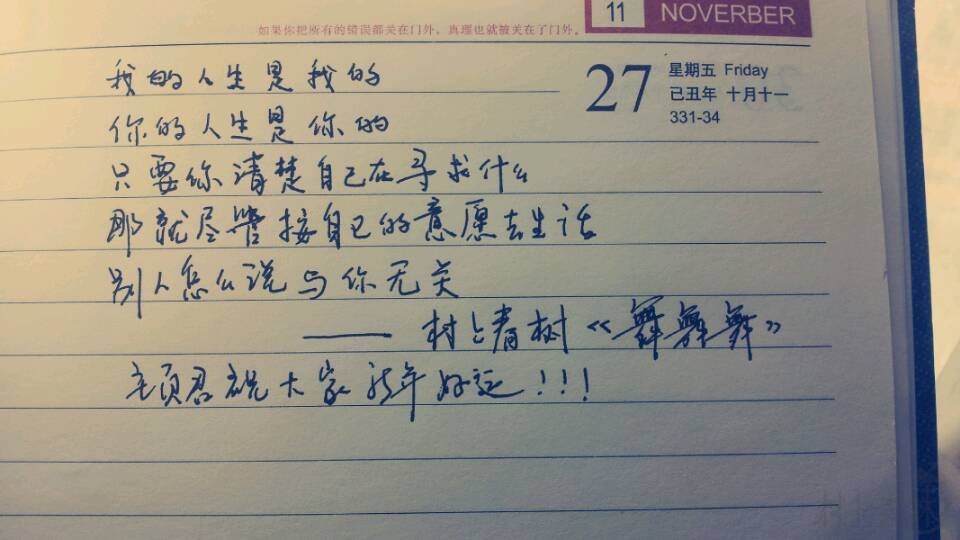 11 NOVERBER
如果你把所有的错误都关在门外，真理也就被关在了门外。
27
星期五 Friday
己丑年 十月十一
331-34
我的人生是我的
你的人生是你的
只要你清楚自己在寻求什么
那就尽管按自己的意愿去生活
别人怎么说与你无关
—— 村上春树《舞舞舞》
君祝大家新年好运！！！
村上